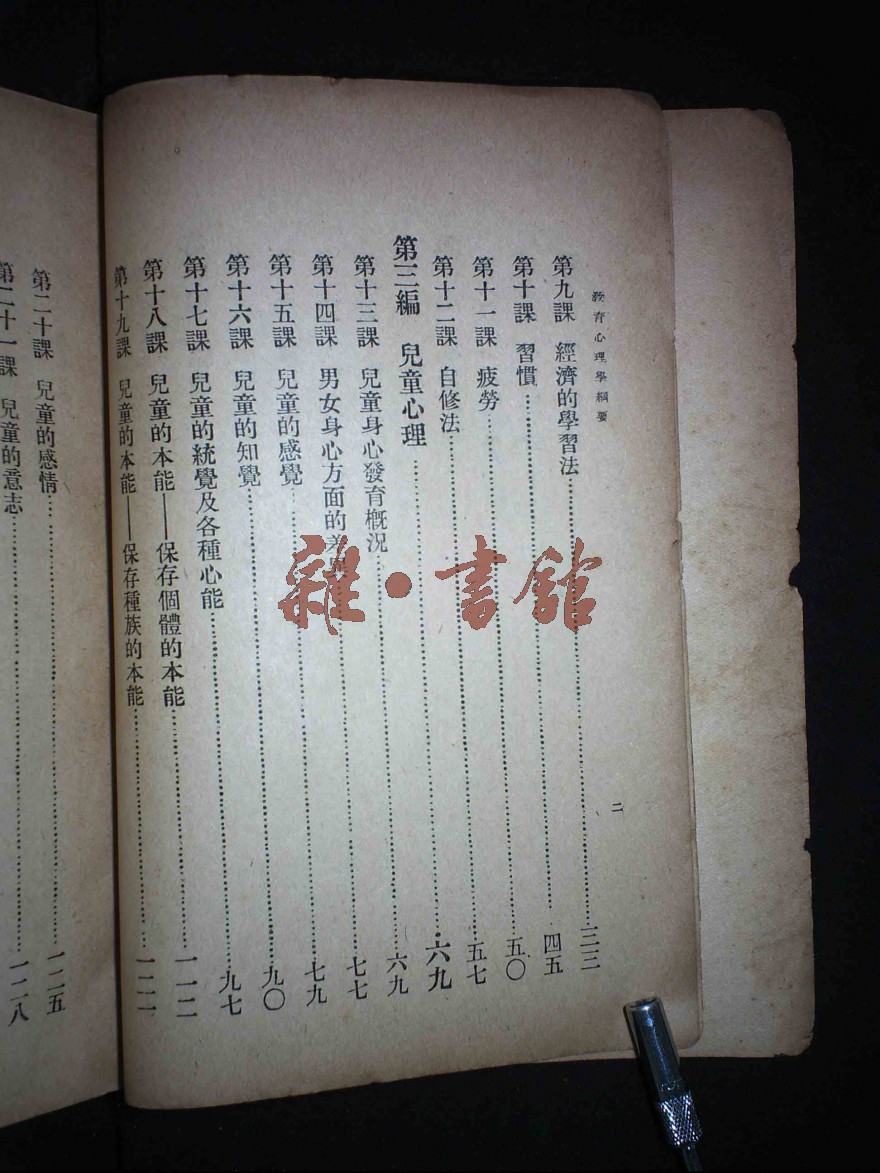 教育心理學綱要
二
第九課 經濟的學習法……三三
第十課 習慣……四五
第十一課 疲勞……五〇
第十二課 自修法……五七
第三編 兒童心理……六九
第十三課 兒童身心發育概況……六九
第十四課 男女身心方面的差異……七七
第十五課 兒童的感覺……七九
第十六課 兒童的知覺……九〇
第十七課 兒童的統覺及各種心能……九七
第十八課 兒童的本能——保存個體的本能……一一二
第十九課 兒童的本能——保存種族的本能……一二一
第二十課 兒童的感情……一二五
第二十一課 兒童的意志……一二八
雜·書館